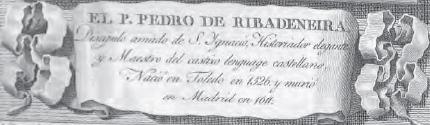 EL P. PEDRO DE RIBADENEIRA,
Discipulo amado de S. Ygnacio, Historiador elegante,
y Maestro del castizo lenguage castellano.
Nació en Toledo en 1526, y murió
en Madrid en 1611.